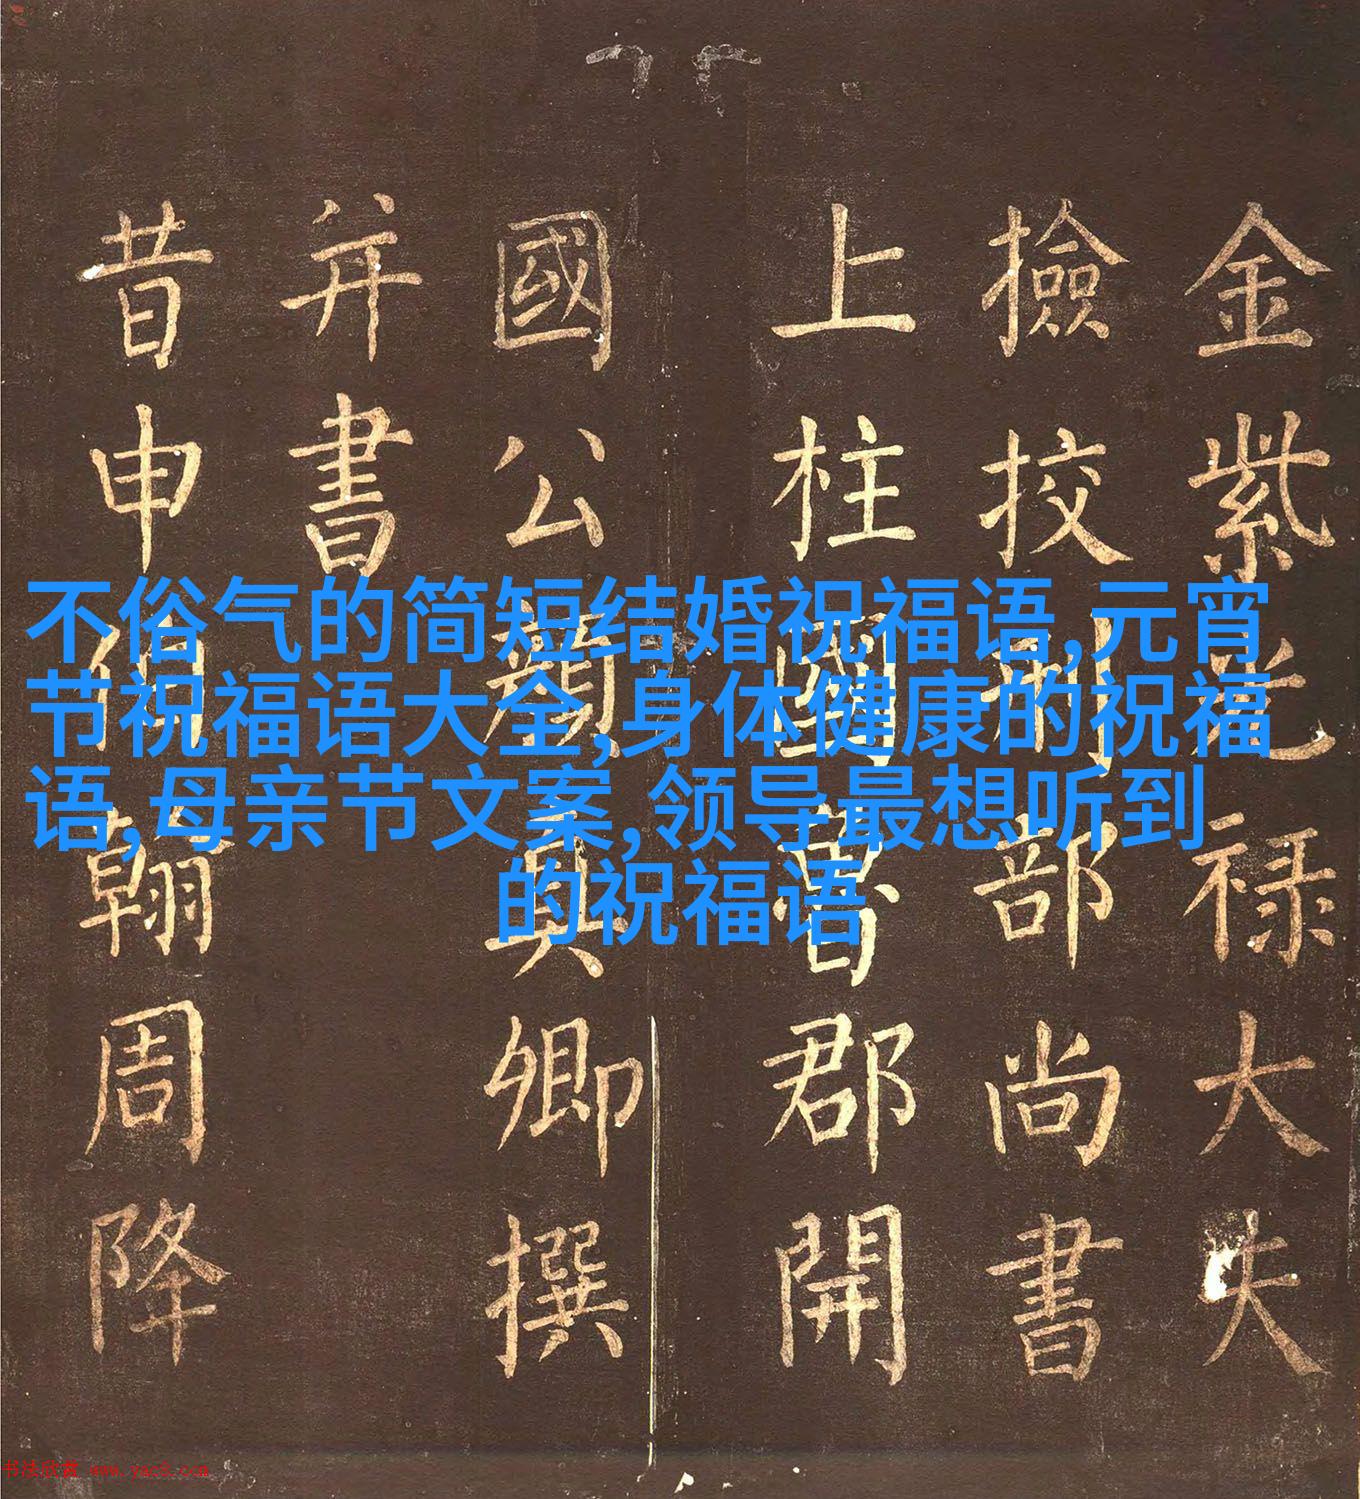 金紫光禄大夫
撿挍刑部尚書
上柱國魯郡開
國公顏真卿撰
并書
昔申伯翰周降
不俗气的简短结婚祝福语,元宵
节祝福语大全,身体健康的祝福
语,母亲节文案,领导最想听到
的祝福语
书法欣赏 www.yac8.com